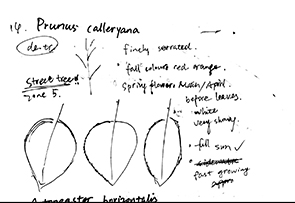 14. Prunus calleryana
de.tr
finely serrated.
fall colour red orange.
street tree
zone 5.
spring flowers March/April.
before leaves.
white
very showy.
full sun ✓
fast growing
horizontalis